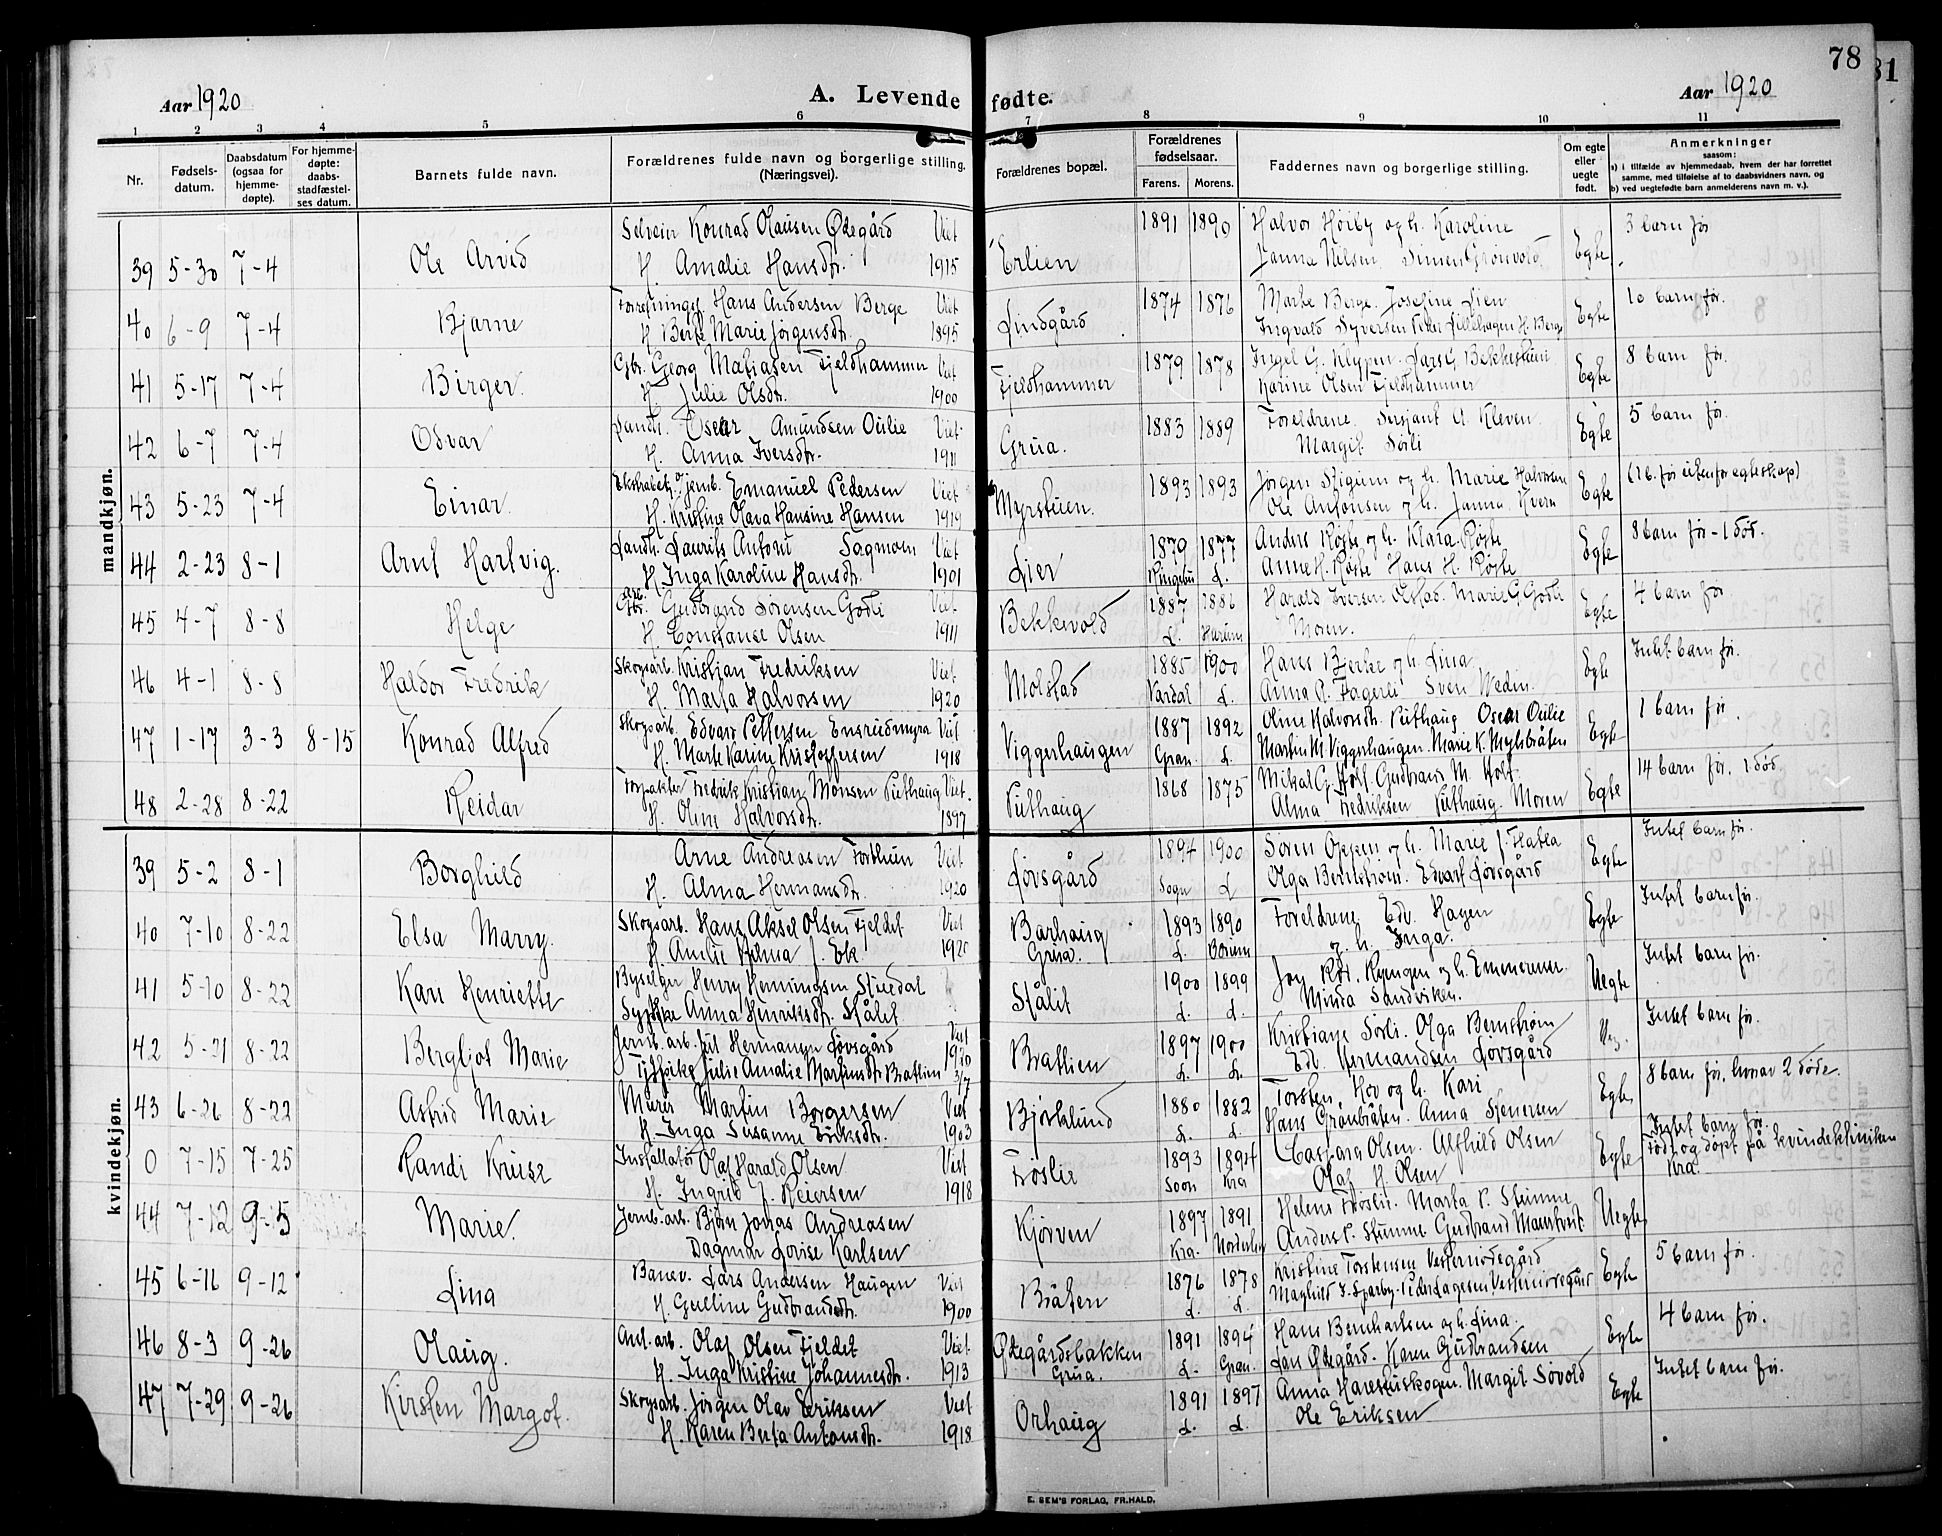 78
81
Aar 1920
A. Levende fødte.
Aar 1920
1 2 3 4 5 6 7 8 9 10 11
Nr.
Fødsels-
datum.
Daabsdatum
(ogsaa for
hjemme-
døpte).
For hjemme-
døpte:
daabs-
stadfæstel-
ses datum.
Barnets fulde navn.
Forældrenes fulde navn og borgerlige stilling.
(Næringsvei).
Forældrenes bopæl.
Forældrenes
fødselsaar.
Farens. Morens.
Faddernes navn og borgerlige stilling.
Om egte
eller
uegte
født.
Anmerkninger
saasom:
a) i tilfælde av hjemmedaab, hvem der har forrettet
samme, med tilføielse af to daabsvidners navn, og
b) ved uegtefødte barn anmelderens navn m. v.).
mandkjøn.
Selveier Konrad Olausen Ødegård Viet 1891 1890 Halvor Høiby og h. Karoline 3 barn før
39 5-30 7-4 Ole Arvid H. Amalie Hansdtr. 1915 Erlien Janna Nilsen. Simen Grønvold. Egte
Hans Andersen Berge Viet 1874 1876 Marte Berge. Josefine Lien 10 barn før.
40 6-9 7-4 Bjarne H. Berte Marie Jörgensdtr. 1895 Lindgård Ingvald Syversen Peder Lillehagen H. Berg Egte
Gbr. Georg Matiasen Fjeldhammer Viet 1879 1878 Ingel G. Klyppen. Lars Bekkestuen 8 barn før.
41 5-17 7-4 Birger. H. Julie Olsdtr. 1900 Fjeldhammer Karine Olsen Fjeldhammer Egte
Landh. Oscar Amundsen Oulie Viet 1883 1889 Foreldrene. Sersjant A. Kleven. 5 barn før.
42 6-7 7-4 Odvar H. Anna Iversdtr. 1911 Grua. Margit Sørli Egte
Emanuel Pedersen Viet 1893 1893 Jørgen Stigum og h. Marie Halvorsen (1 b. før utenfor egteskap)
43 5-23 7-4 Einar. H. Kristine Olava Hansine Hansen 1919 Myrstuen. Ole Antonsen og h. Janna Kvern Egte
Landh. Laurits Antoni Sagmoen Viet 1879 1877 Anders Røste og h. Klara Røste 8 barn før - 1 død.
44 2-23 8-1 Arnt Hartvig. H. Inga Karoline Hansdtr. 1901 Lier Ringebu L. Anne H. Røste Hans H. Røste Egte
Gbr. Gudbrand Sørensen Godli Viet 1887 1886 Harald Iversen Olstad. Marie G. Godli 4 barn før
45 4-7 8-8 Helge H. Constanse Olsen 1911 Bekkevold L. Hurum Moren. Egte
Skogsarb. Kristian Fredriksen Viet 1885 1900 Hans Bjerke og h. Lina Intet barn før.
46 4-1 8-8 Haldor Fredrik H. Marta Halvorsen 1920 Molstad Vardal L. Anna R. Fagerli Sven Wedin. Egte
Skogsarb. Edvart Pettersen Ensrudmyra Viet 1887 1892 Oline Halvorsdtr. Puthaug Oscar Oulie 1 barn før.
47 1-17 3-3 8-15 Konrad Alfred H. Marte Karine Kristoffersen 1918 Viggerhaugen Gran L. Martin M. Viggerhaugen. Marie K. Myhlsbråten Egte
Forpakter Fredrik Kristian Monsen Puthaug Viet. 1868 1875 Mikal G. Holt Gudbrand M. Holt. 14 barn før. 1 død.
48 2-28 8-22 Reidar H. Oline Halvorsdtr. 1897 Puthaug Alma Fredriksen Puthaug. Moren Egte
kvindekjøn.
Arne Andreasen Forthun Viet 1894 1900 Søren Oppen og h. Marie J. Flatla Intet barn før.
39 5-2 8-1 Borghild H. Alma Hermansdtr. 1920 Lovsgård Sogn L Olga Bernstrøm. Edvart Lovsgård Egte
Skogsarb. Hans Aksel Olsen Fjeldet Viet 1893 1890 Foreldrene. Edv. Hagen Intet barn før.
40 7-10 8-22 Elsa Marry. H. Hilma f. Ek 1920 Barhaug Grua. L. og h. Inga. Egte
Byselger Henry Henningsen 1900 1899 Intet barn før.
41 5-10 8-22 Kari Henriette Anna Henriksdtr. Stålet Stålet L. L. Minda Sandviken. Uegte
Jernb. arb. Hermansen Lovsgård Viet 1920 1897 1900 Kristiane Sørli. Olga Bernstrøm Intet barn før.
42 5-21 8-22 Bergljot Marie Julie Amalie Martinsdtr. Brattlien 3/7 Brattlien L. L. Edv. Hermandsen Lovsgård
Murer Martin Borgersen Viet 1880 1882 Torsten Hov og h. Kari 8 barn før, hvorav 2 døde.
43 6-26 8-22 Astrid Marie H. Inga Susanne Eriksdtr. 1903 Bjørklund L. L. Hans Grønbråten. Anna Stenersen Egte
Installatør Olaf Harald Olsen Viet 1893 1894 Caspara Olsen. Alfhild Olsen Intet barn før. Født og døpt på kvindekliniken
0 7-15 7-25 Randi Kruse H. Ingrid f. Reiersen 1918 Frøslie Soon Kra Olaf H. Olsen Egte Kra.
Jernb. arb. Bjørn Jonas Andreasen 1897 1891 Helene Frøslie. Marta P. Stumne
44 7-12 9-5 Marie. Dagmar Lovise Karlsen Kjørven Kra. Anders P. Stumne Gudbrand Uegte
Banev. Lars Andersen Haugen Viet 1876 1878 Kristine Torstensen 5 barn før.
45 6-16 9-12 Lina H. Gulline Gudbrandsdtr. 1900 Bråten L. L. Egte
Anl. arb. Olaf Olsen Fjeldet Viet 1891 1894 Hans Bernhartsen og h. Lina. 4 barn før.
46 8-3 9-26 Olaug. H. Inga Kristine Johannesdtr. 1913 Ødegårdsbakken Grua. L. Gran. Lars Ødegård. Karen Gudbrandsen Egte
Skogsarb. Jörgen Olav Eriksen Viet 1891 1897 Anna Harestuskogen. Margit Søvold Intet barn før.
47 7-29 9-26 Kirsten Margot. H. Karen Berta Antonsdtr. 1918 Orhaug L. L. Ole Eriksen Egte
E. SEM'S FORLAG, FR.HALD.